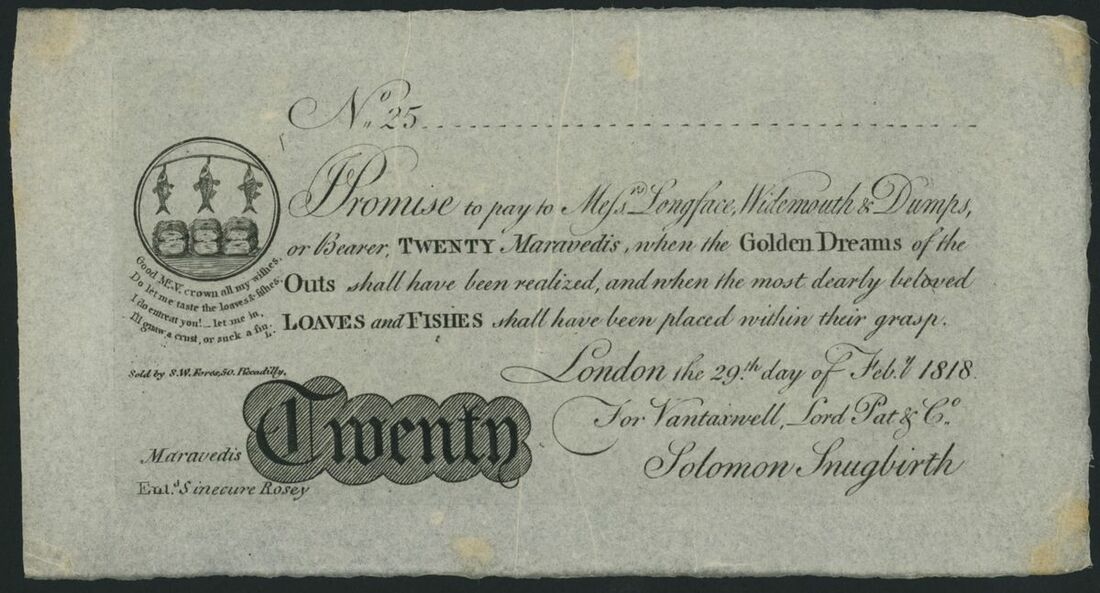 No. 25
I Promise to pay to Messrs. Longface, Widemouth & Dumps,
or Bearer, TWENTY Maravedis, when the Golden Dreams of the
Outs shall have been realized, and when the most dearly beloved
LOAVES and FISHES shall have been placed within their grasp.
Good Mr. V. crown all my wishes,
Do let me taste the loaves & fishes.
I do entreat you! _ let me in,
I'll gnaw a crust, or suck a fin.
Sold by S.W. Fores, 50, Piccadilly.
London the 29th. day of Feby. 1818.
For Vantaxwell, Lord Pat & Co.
Solomon Snugbirth
Twenty
Maravedis
Entd. Sinecure Rosey